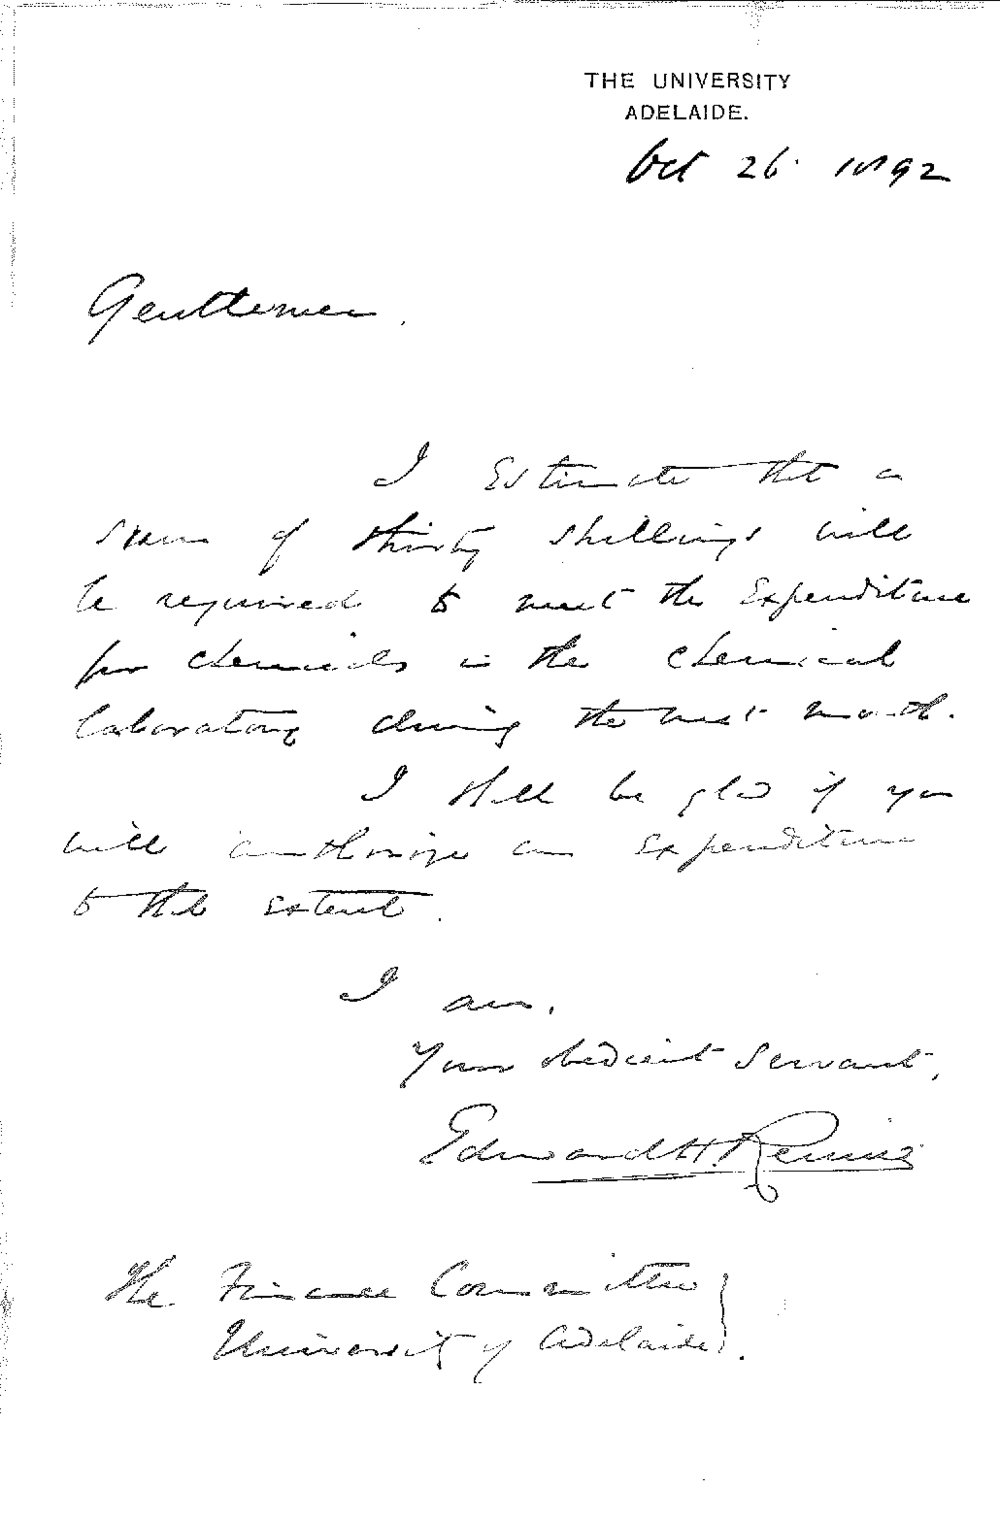 THE UNIVERSITY
ADELAIDE.
Oct 26. 1892
Gentlemen.
I Estimate that a
sum of thirty shillings will
be required to meet the Expenditure
for chemicals in the chemical
laboratory during the next month.
I shall be glad if you
will authorize an Expenditure
to the extent.
I am,
Your obedient Servant,
Edward H. Rennie
The Finance Committee
University of Adelaide.